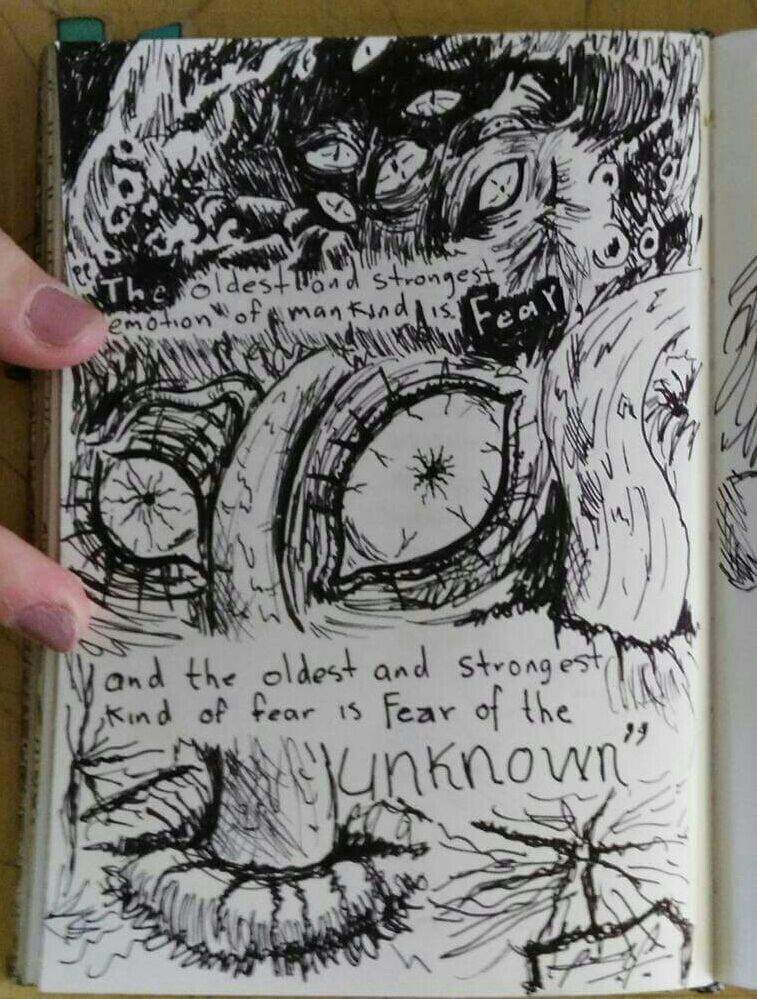 The oldest and strongest
emotion of mankind is Fear,
and the oldest and strongest
kind of fear is Fear of the
unknown"